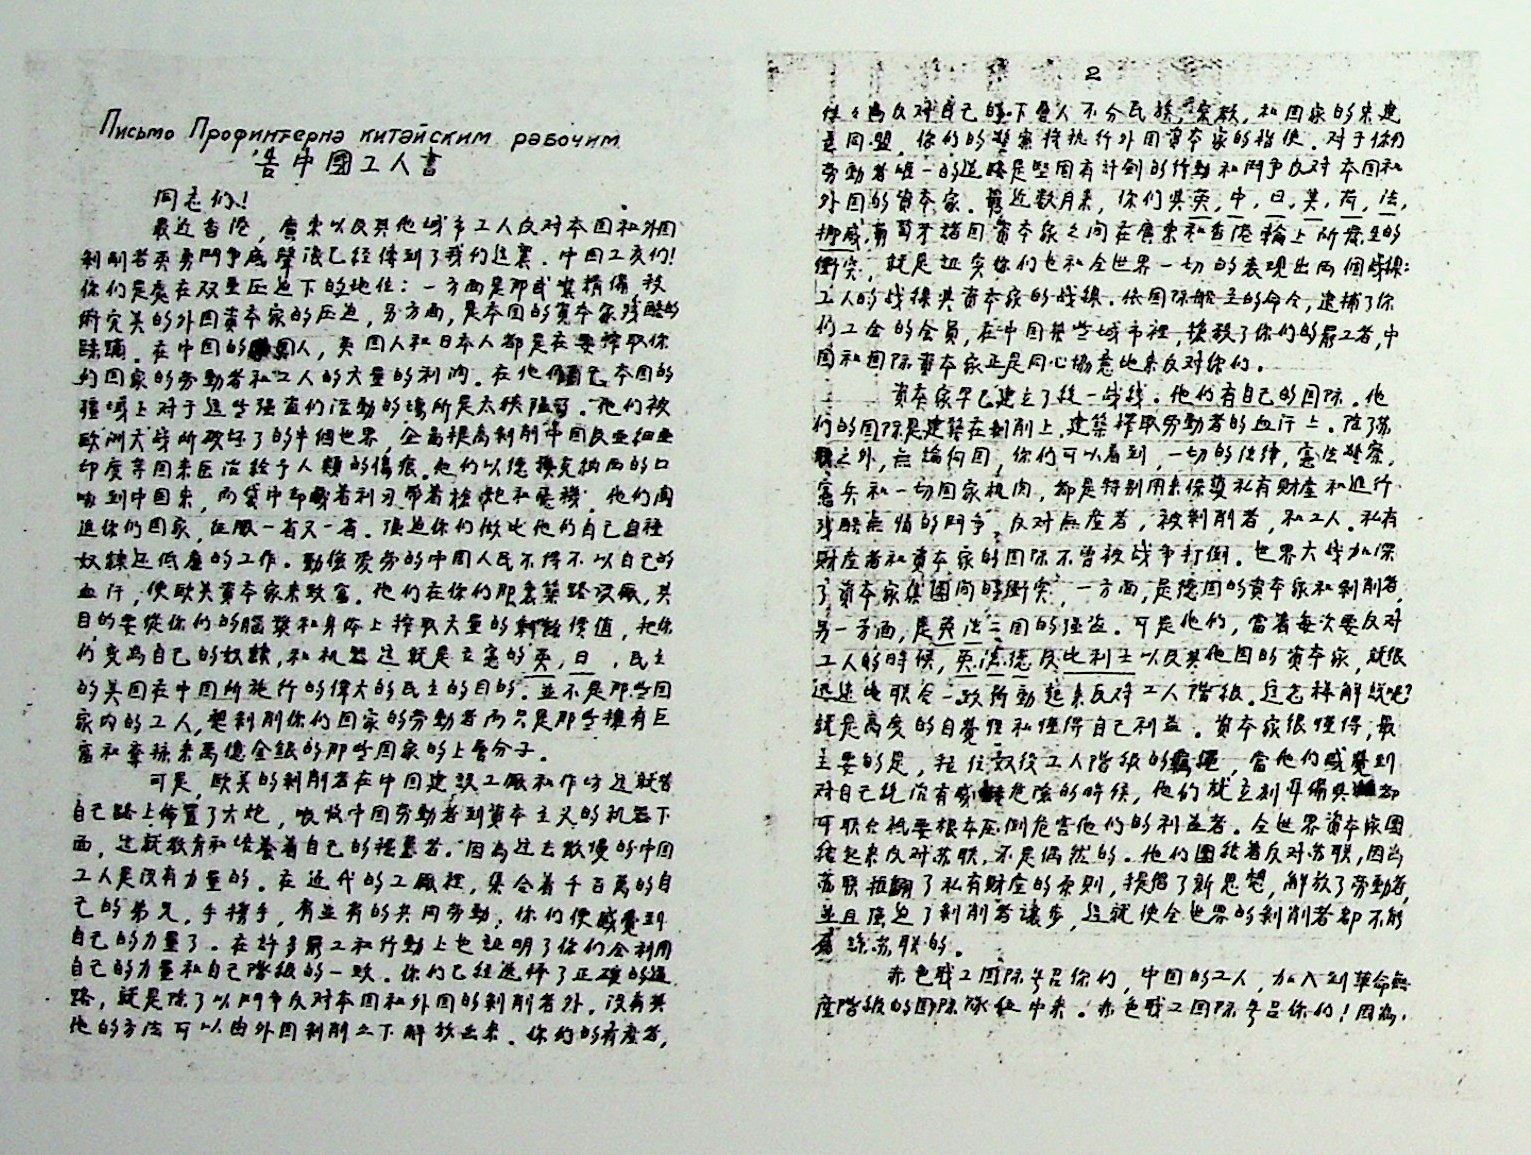 Письмо Профинтерна китайским рабочим
告中國工人書
同志们!
最近香港，廣東以及其他城市工人反对本国和外国
剥削者英勇鬥争底聲浪已经傳到了我们这裏．中国工友们!
你们是處在双重压迫下的地位：一方面是那武装精備 技
術完美的外国資本家的压迫，另方面，是本国的資本家残酷的
蹂躏．在中国的 国人，英国人和日本人都是在要搾取你
们国家的劳動者和工人的大量的利润．在他们自己本国的
疆域上对于这些强盗们活動的場所是太狭隘了．他们被
欧洲大战所破坏了的半個世界，企高提高剥削中国民亚細亚
印度等国来医治給予人類的傷痕．他们以德謨克納西的口
号到中国来，而袋中却藏着利刃带着槍炮和飛機．他们闯
進你们国家，征服一省又一省．强迫你们做比他们自己自種
奴隸还低廉的工作．勤儉爱劳的中国人民不得不以自己的
血汗，使欧美資本家来致富．他们在你们那裏築路设廠，其
目的要從你们的腦漿和身体上搾取大量的剩餘價值，把你
们变為自己的奴隸，和机器这就是立憲的英，日，民主
的美国在中国所施行的偉大的民主的目的．並不是那些国
家内的工人，想剥削你们国家的劳動者而只是那些擁有巨
富和 萬億金銀的那些国家的上層分子．
可是，欧美的剥削者在中国建設工廠和作坊这就替
自己路上佈置了大炮，吸收中国劳動者到資本主义的机器下
面，这就教育和培養着自己的掘墓者．因為过去散漫的中国
工人是没有力量的．在近代的工廠裡，集合着千百萬的自
己的弟兄，手携手，肩並肩的共同劳動，你们便感覺到
自己的力量了．在許多罷工和行動上也証明了你们会利用
自己的力量和自己階級的一致．你们已经选择了正確的道
路，就是除了以鬥争反对本国和外国的剥削者外，没有其
他的方法可以由外国剥削之下解放出来．你们的有產者，
2
往々為反对自己的下層人不分民族，宗教，和国家的来建
立同盟．你们的警察将执行外国資本家的指使．对于你们
劳動者唯一的道路是坚固有计划的行動和鬥争反对本国和
外国的資本家．最近数月来，你们與英，中，日，美，荷，法，
挪威，葡萄牙諸国資本家之间在廣東和香港輪上所發生的
衝突，就是証实你们也和全世界一切的表現出两個战線：
工人的战線與資本家的战線．依国际船主的命令，逮捕了你
们工会的会員，在中国某些城市裡，槍殺了你们的罷工者，中
国和国际資本家正是同心協意地来反对你们．
資本家早已建立了統一战线．他们有自己的国际．他
们的国际是建築在剥削上，建築搾取劳動者的血汗上．除了苏
联之外，無論何国，你们可以看到，一切的法律，憲法警察，
憲兵和一切国家机关，都是特别用来保護私有财產和進行
残酷無情的鬥争，反对無產者，被剥削者，和工人．私有
财產者和資本家的国际不曾被战争打倒．世界大战加深
了資本家集團间的衝突，一方面，是德国的資本家和剥削者，
另一方面，是英法二国的强盗．可是他们，當着每次要反对
工人的時候，英法德及比利士以及其他国的資本家，就很
迅速地联合一致行動起来反对工人階級．这怎样解説呢?
就是高度的自覺性和懂得自己利益．資本家很懂得，最
主要的是，拉住奴役工人階級的 繩，當他们感覺到
对自己統治有 危險的時候，他们就立刻準備與 都
可联合祗要根本压倒危害他们的利益者．全世界資本家團
结起来反对苏联，不是偶然的．他们團结着反对苏联，因為
苏联推翻了私有财產的原则，提倡了新思想，解放了劳動者，
並且强迫了剥削者讓步，这就使全世界的剥削者都不能
寬 恕苏联的．
赤色職工国际号召你们，中国的工人，加入到革命無
產階級的国际隊伍中来．赤色職工国际号召你们！因為，